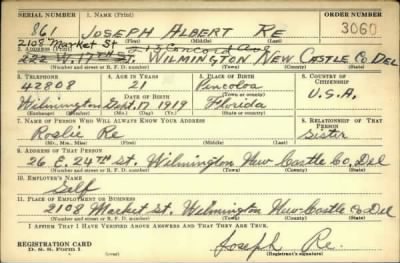 SERIAL NUMBER 1. NAME (Print) ORDER NUMBER
861 JOSEPH ALBERT RE 3060
(First) (Middle) (Last)
2108 Market St 213 Concord Ave
2. ADDRESS (Print)
222 W. 17TH ST. WILMINGTON NEW CASTLE Co DEL
(Number and street or R. F. D. number) (Town) (County) (State)
3. TELEPHONE 4. AGE IN YEARS 5. PLACE OF BIRTH 6. COUNTRY OF CITIZENSHIP
42808 21 Pincoloa
DATE OF BIRTH (Town or county) U.S.A.
Wilmington Sept. 17 1919 Florida
(Exchange) (Number) (Mo.) (Day) (Yr.) (State or country)
7. NAME OF PERSON WHO WILL ALWAYS KNOW YOUR ADDRESS 8. RELATIONSHIP OF THAT PERSON
Roslie Re Sister
(Mr., Mrs., Miss) (First) (Middle) (Last)
9. ADDRESS OF THAT PERSON
26 E. 24TH St. Wilmington New Castle Co, Del
(Number and street or R. F. D. number) (Town) (County) (State)
10. EMPLOYER'S NAME
Self
11. PLACE OF EMPLOYMENT OR BUSINESS
2108 Market St. Wilmington New Castle Co Del
(Number and street or R. F. D. number) (Town) (County) (State)
I AFFIRM THAT I HAVE VERIFIED ABOVE ANSWERS AND THAT THEY ARE TRUE.
REGISTRATION CARD Joseph Re.
D. S. S. Form 1 (Registrant's signature)